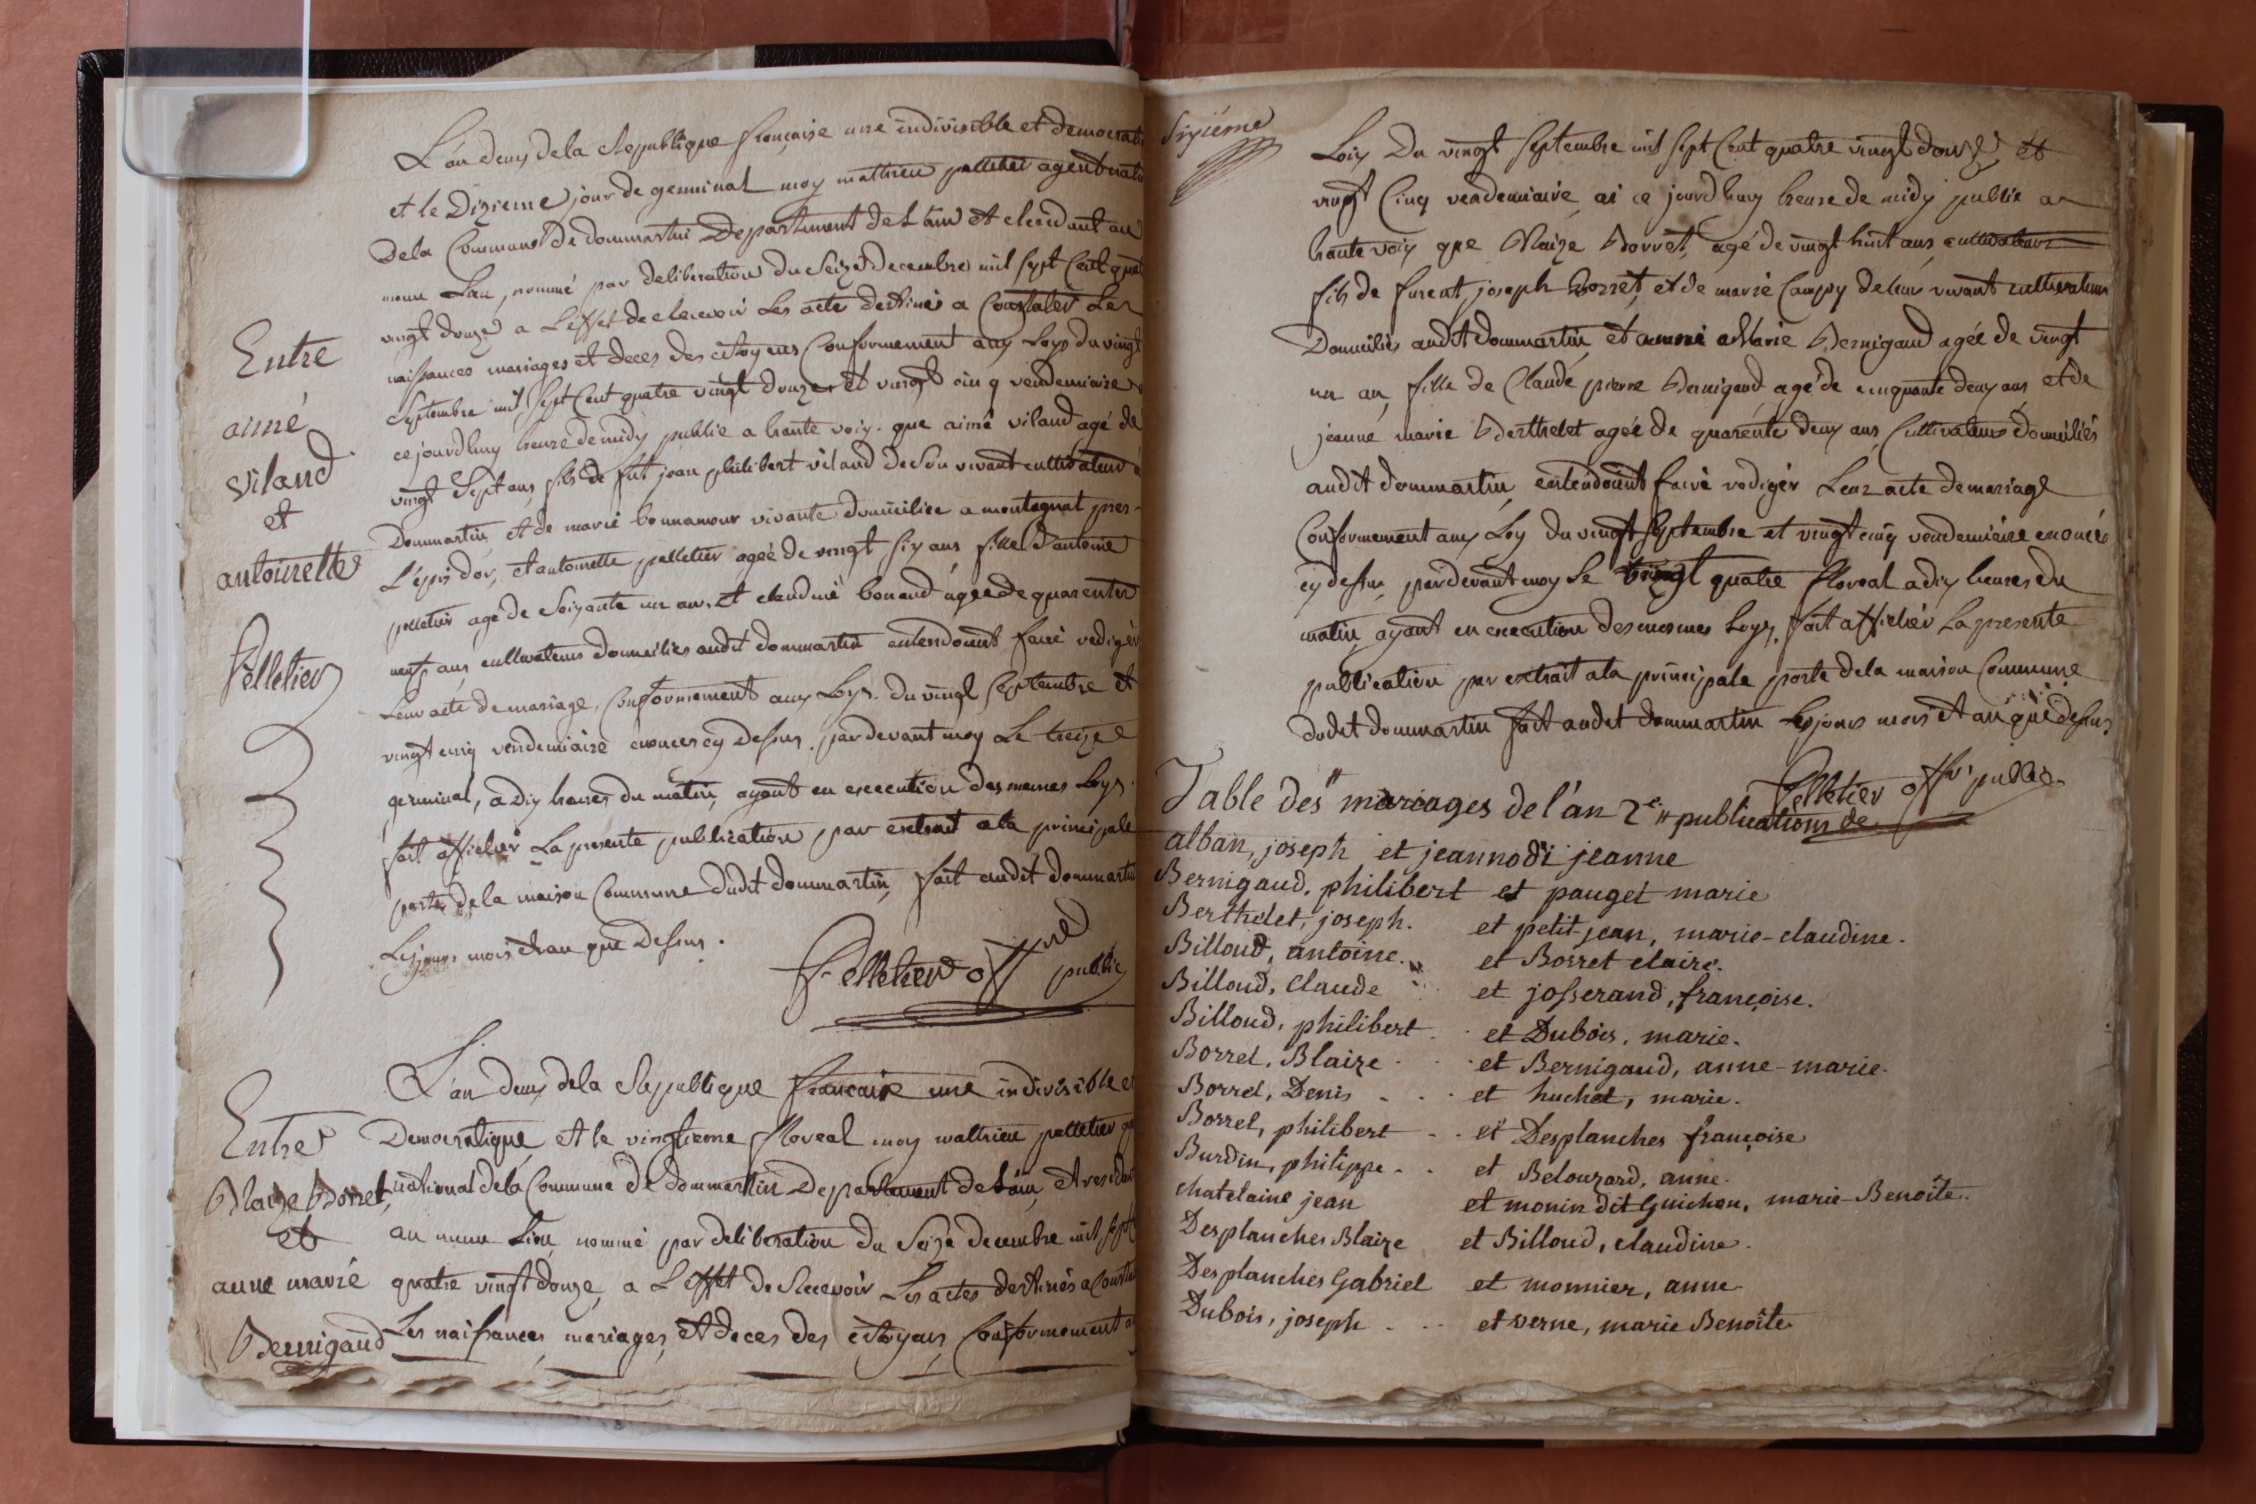 Entre
aimé
vilaud
et
antoinette
Pelletier
L'an deux de la Republique françaíse une indivisible et democrati
et le Dixieme jour de germinal moy mathieu pelletier agent nati
De la Commune de dommartin Departement de L'ain et residant au
meme Lieu, nommé par deliberation du Seize decembre mil sept Cent qua
vingt douze a L'effet de recevoir Les acte destinés a Constater Les
naissances mariages et deces des citoyens Conformement aux Loys du vingt
Septembre mil Sept Cent quatre vingt douze et vingt cinq vendemiaire
ce jourdhuy heure de midy publie a haute voix que aimé vilaud agé de
vingt Sept ans fils de fut jean philibert vilaud de Son vivant cultivateur a
Dommartin et de marie bonnamour vivante domiciliee a montagnat pres
L'épis d'or, et antoinette pelletier ageé de vingt six ans fille d'antoine
pelletier agé de Soixante un ans et claudine bonaud ageé de quarente
neuf ans cultivateurs domiciliés audit dommartin entendoint faire rediger
Leur acte de mariage, Conformement aux Loys du vingt Septembre et
vingt cinq vendemiaire enoncés cy Dessus par devant moy Le treize
germinal, a dix heures du matin, ayant en execution des memes Loys
fait afficher La presente publication par extrait a la principale
porte de la maison Commune dudit dommartin, fait audit dommartin
Les jour mois et an que Dessus.
Pelletier off public
Entre
Blaize Borret
et
anne marie
Bernigaud
L'an deux de la Republique francaise une indivisible et
Democratique et le vingtieme floreal moy mathieu pelletier
national de la Commune de dommartin Departement de L'ain, et residant
au meme Lieu nommé par deliberation du Seize decembre mil sept
quatre vingt douze, a L'effet de Recevoir Les actes destinés a Constat
Les naissances, mariages, et deces des citoyens Conformement a
Sixiéme
Loix Du vingt Septembre mil Sept Cent quatre vingt douze, et
vingt Cinq vendemiaire ai ce jourdhuy heure de midy publie a
haute voix que Blaize Borret, agé de vingt huit ans, cultivateur
fils de furent joseph Borret, et de marie Campoy de leur vivant cultivateurs
Domiciliés audit dommartin et anne Marie Bernigaud ageé de vingt
un an, fille de Claude pierre Bernigaud agé de cinquante deux ans et de
jeanne marie Berthelet ageé de quarente deux ans Cultivateurs domiciliés
audit dommartin, entendoint faire rediger Leur acte de mariage
Conformement aux Loy du vingt Septembre et vingt cinq vendemiaire enoncés
cy dessus par devant moy Le vingt quatre floreal a dix heures du
matin, ayant en execution des mesmes Loys, fait afficher La presente
publication par extrait a la principale porte de la maison Commune
dudit dommartin fait audit dommartin Les jours mois et an que dessus
Pelletier offr public
Table des mariages de l'an 2e publications de
alban, joseph et jeannodi jeanne
Bernigaud, philibert et pauget marie
Berthelet, joseph. et petit jean, marie-claudine.
Billoud, antoine. et Borret claire.
Billoud, Claude et josserand, françoise.
Billoud, philibert. et Dubois, marie.
Borret, Blaize et Bernigaud, anne-marie.
Borret, Denis et huchet, marie.
Borret, philibert et Desplanches françoise
Burdin, philippe et Belouzard, anne.
chatelaine jean et monin dit Guichon, marie-Benoîte.
Desplanches Blaize et Billoud, claudine.
Desplanches Gabriel et monnier, anne
Dubois, joseph et verne, marie Benoîte